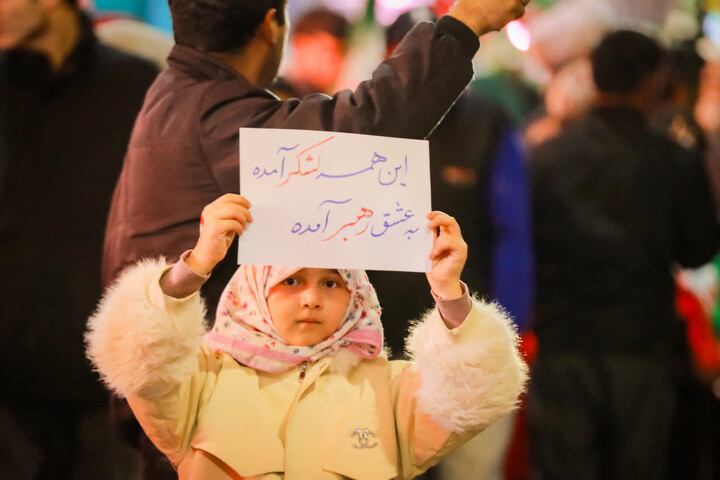 این همه لشکر آمده
به عشق رهبر آمده